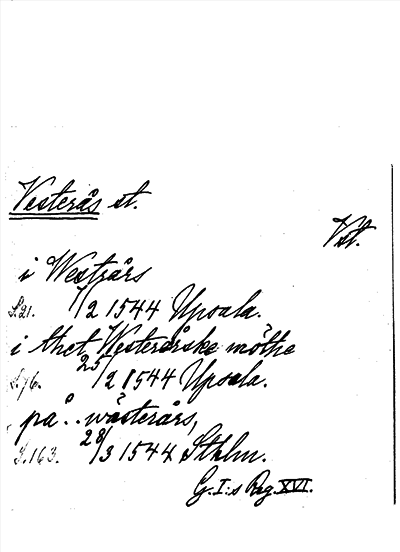 Vesterås st.
Vst.
i Westrårs
S.21. 1/2 1544 Upsala.
i thet Westerårske möthe
S.76. 25/2 1544 Upsala.
på.. wästerårs,
S.163. 28/3 1544 Sthlm.
G.I:s Reg. XVI.